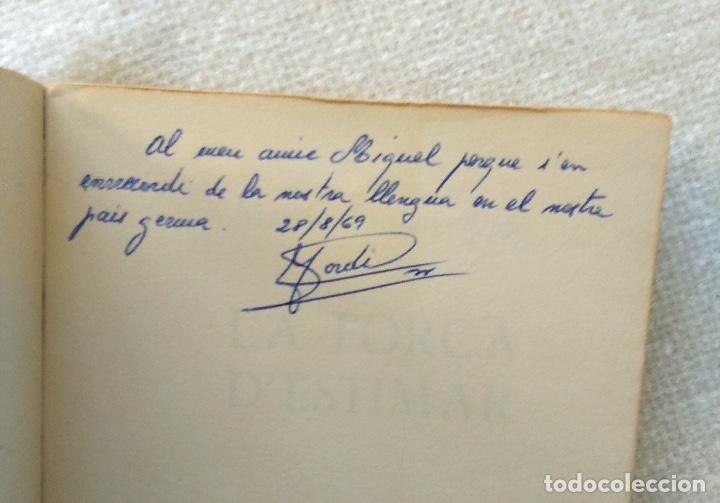 Al meu amic Miquel perque s'en
enrrecordi de la nostra llengua en el nostre
pais germa. 28/8/69
Jordi
LA FORÇA
D'ESTIMAR
todocoleccion